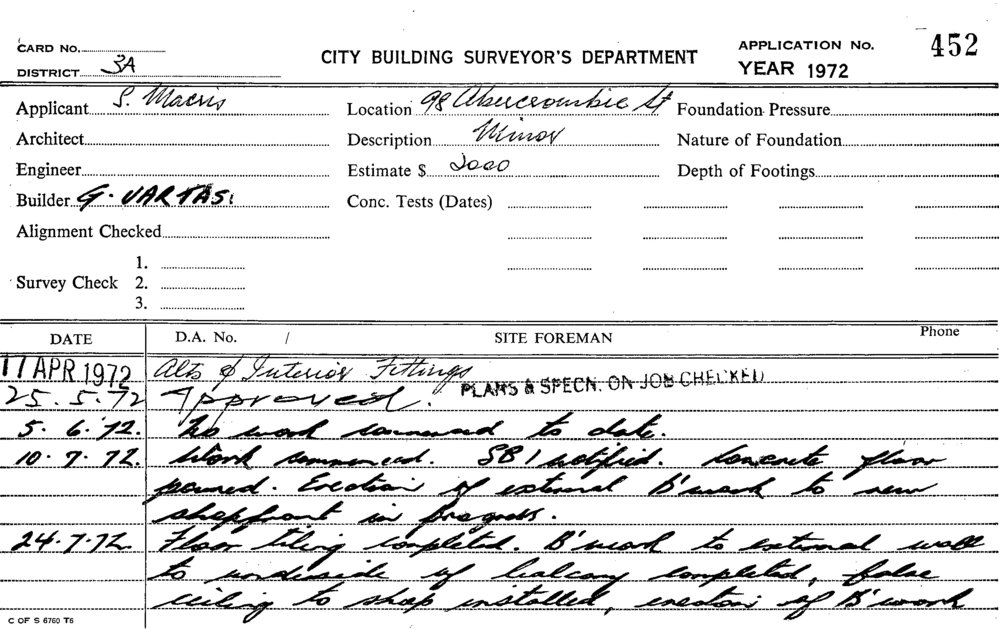 CARD No.
DISTRICT 3A
CITY BUILDING SURVEYOR'S DEPARTMENT
APPLICATION No. 452
YEAR 1972
Applicant S. Macris
Location 98 Abercrombie St
Foundation Pressure
Architect
Description Minor
Nature of Foundation
Engineer
Estimate $ 2000
Depth of Footings
Builder G. VARTAS.
Conc. Tests (Dates)
Alignment Checked
Survey Check 1.
2.
3.
DATE D.A. No. / SITE FOREMAN Phone
17 APR 1972 Alts & Interior Fittings
PLANS & SPECN. ON JOB CHECKED
25.5.72 Approved.
5.6.72. No work commenced to date.
10.7.72. Work commenced. SB1 notified. Concrete floor
poured. Erection of external B'work to new
shopfront in progress.
24.7.72. Floor tiling completed. B'work to external wall
to underside of balcony completed, false
ceiling to shop installed, erection of B'work
C OF S 6760 T6